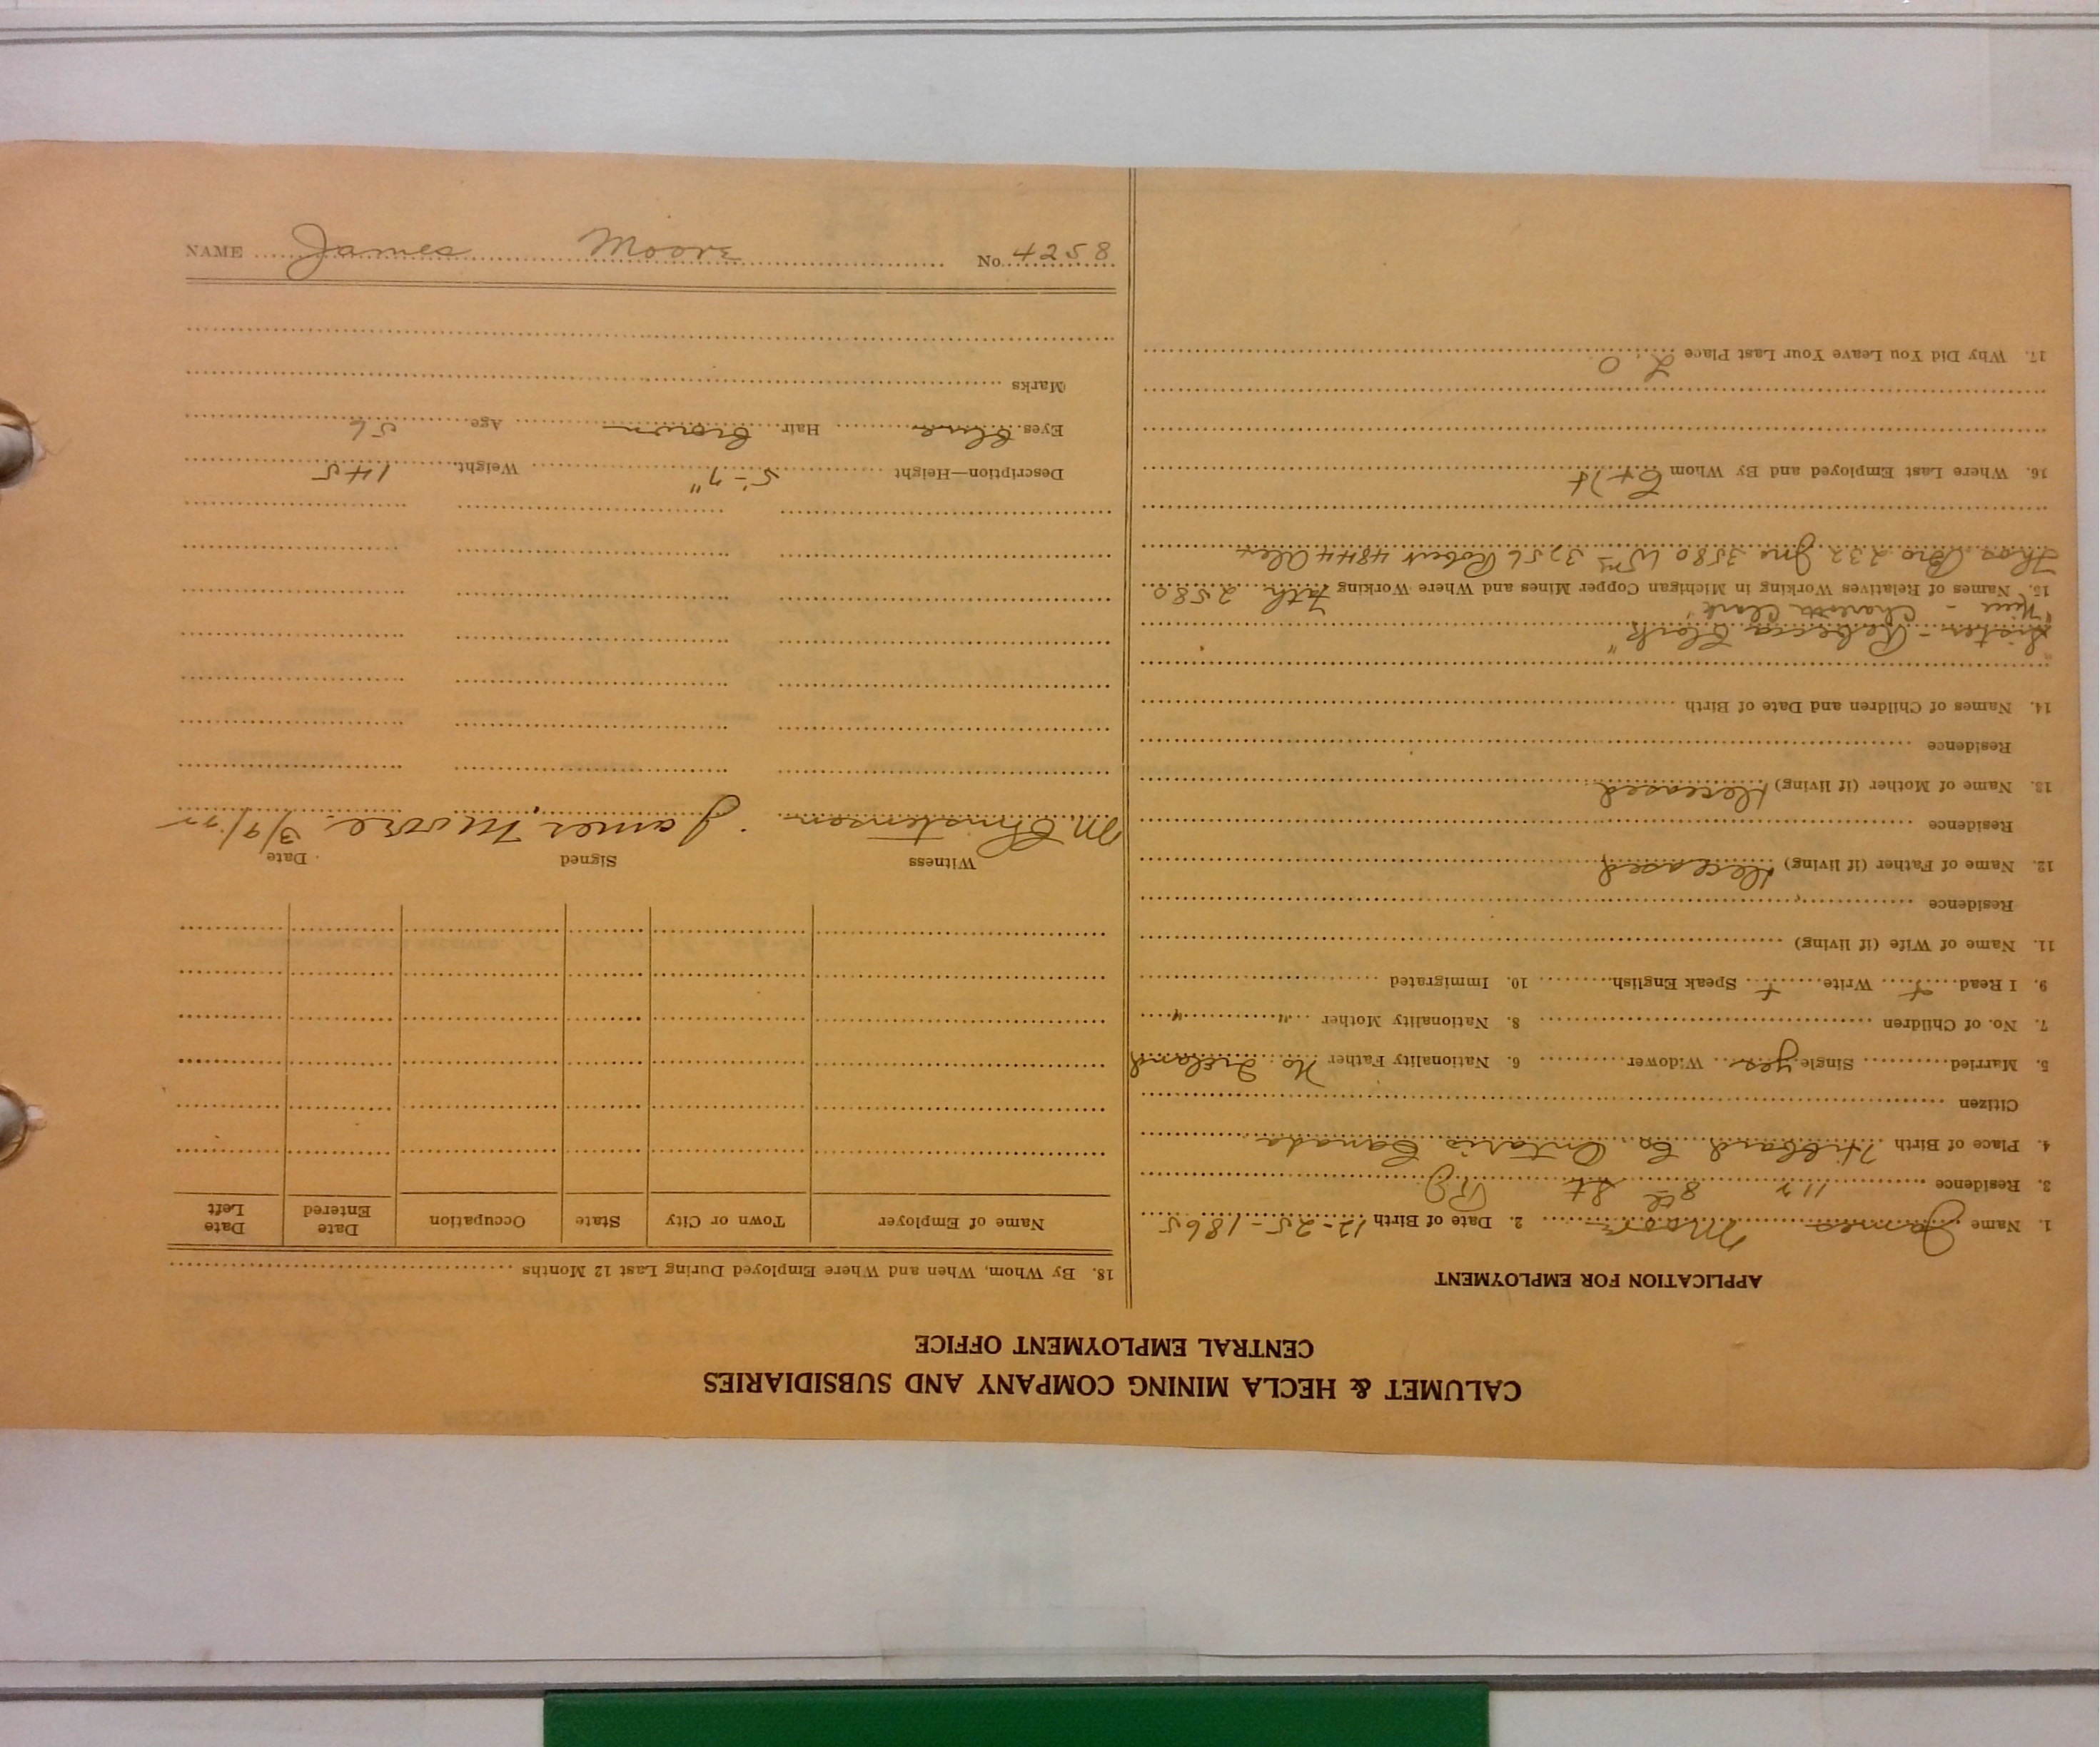 CALUMET & HECLA MINING COMPANY AND SUBSIDIARIES
CENTRAL EMPLOYMENT OFFICE
APPLICATION FOR EMPLOYMENT
1. Name James Moore 2. Date of Birth 12-25-1865
3. Residence 117 8th St
4. Place of Birth Co, Ontario Canada
Citizen
5. Married Single yes Widower 6. Nationality Father No. Ireland
7. No. of Children 8. Nationality Mother " "
9. I Read + Write + Speak English 10. Immigrated
11. Name of Wife (if living)
Residence
12. Name of Father (if living) Deceased
Residence
13. Name of Mother (if living) Deceased
Residence
14. Names of Children and Date of Birth
Sister - Rebecca Clark "
"Niece - Clark"
15. Names of Relatives Working in Michigan Copper Mines and Where Working 2580
Thos Bro 232 Jno 3580 Wm 3256 Robert 4844 Alex
16. Where Last Employed and By Whom C+H
17. Why Did You Leave Your Last Place L.O.
18. By Whom, When and Where Employed During Last 12 Months
Name of Employer Town or City State Occupation Date Entered Date Left
Witness Signed Date
M Christenson James Moore 3/9/22
Description—Height 5'-7" Weight 145
Eyes blue Hair brown Age 56
Marks
NAME James Moore No. 4258